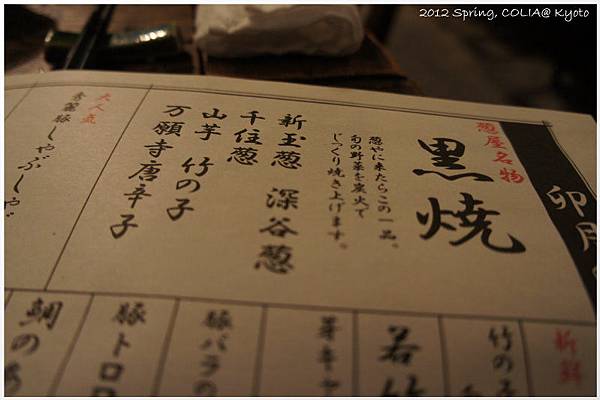 2012 Spring, COLIA@ Kyoto
卯月
葱屋名物
黒焼
葱やに来たらこの一品。
旬の野菜を炭火で
じっくり焼き上げます。
新玉葱 深谷葱
千住葱
山芋 竹の子
万願寺唐辛子
大人気
しゃぶしゃぶ
新鮮
竹の子
若竹
芽キャ
豚バラの
豚トロ
鯛の